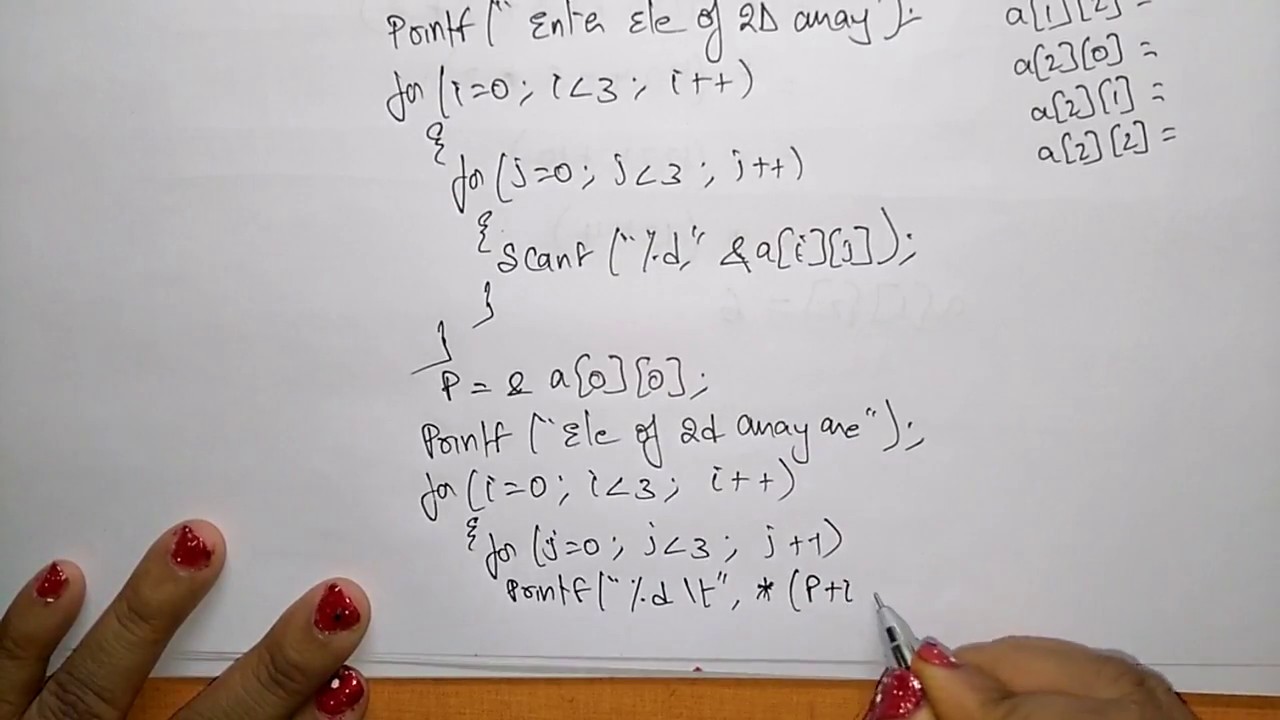 Printf (" Enter Ele of 2D array");
for (i=0; i<3; i++)
{
for (j=0; j<3; j++)
{ Scanf ("%d," &a[i][j]);
}
}
P = & a[0][0];
Printf ("Ele of 2d array are");
for (i=0; i<3; i++)
{ for (j=0; j<3; j++)
Printf ("%d \t", * (P+i
a[1][2] =
a[2][0] =
a[2][1] =
a[2][2] =